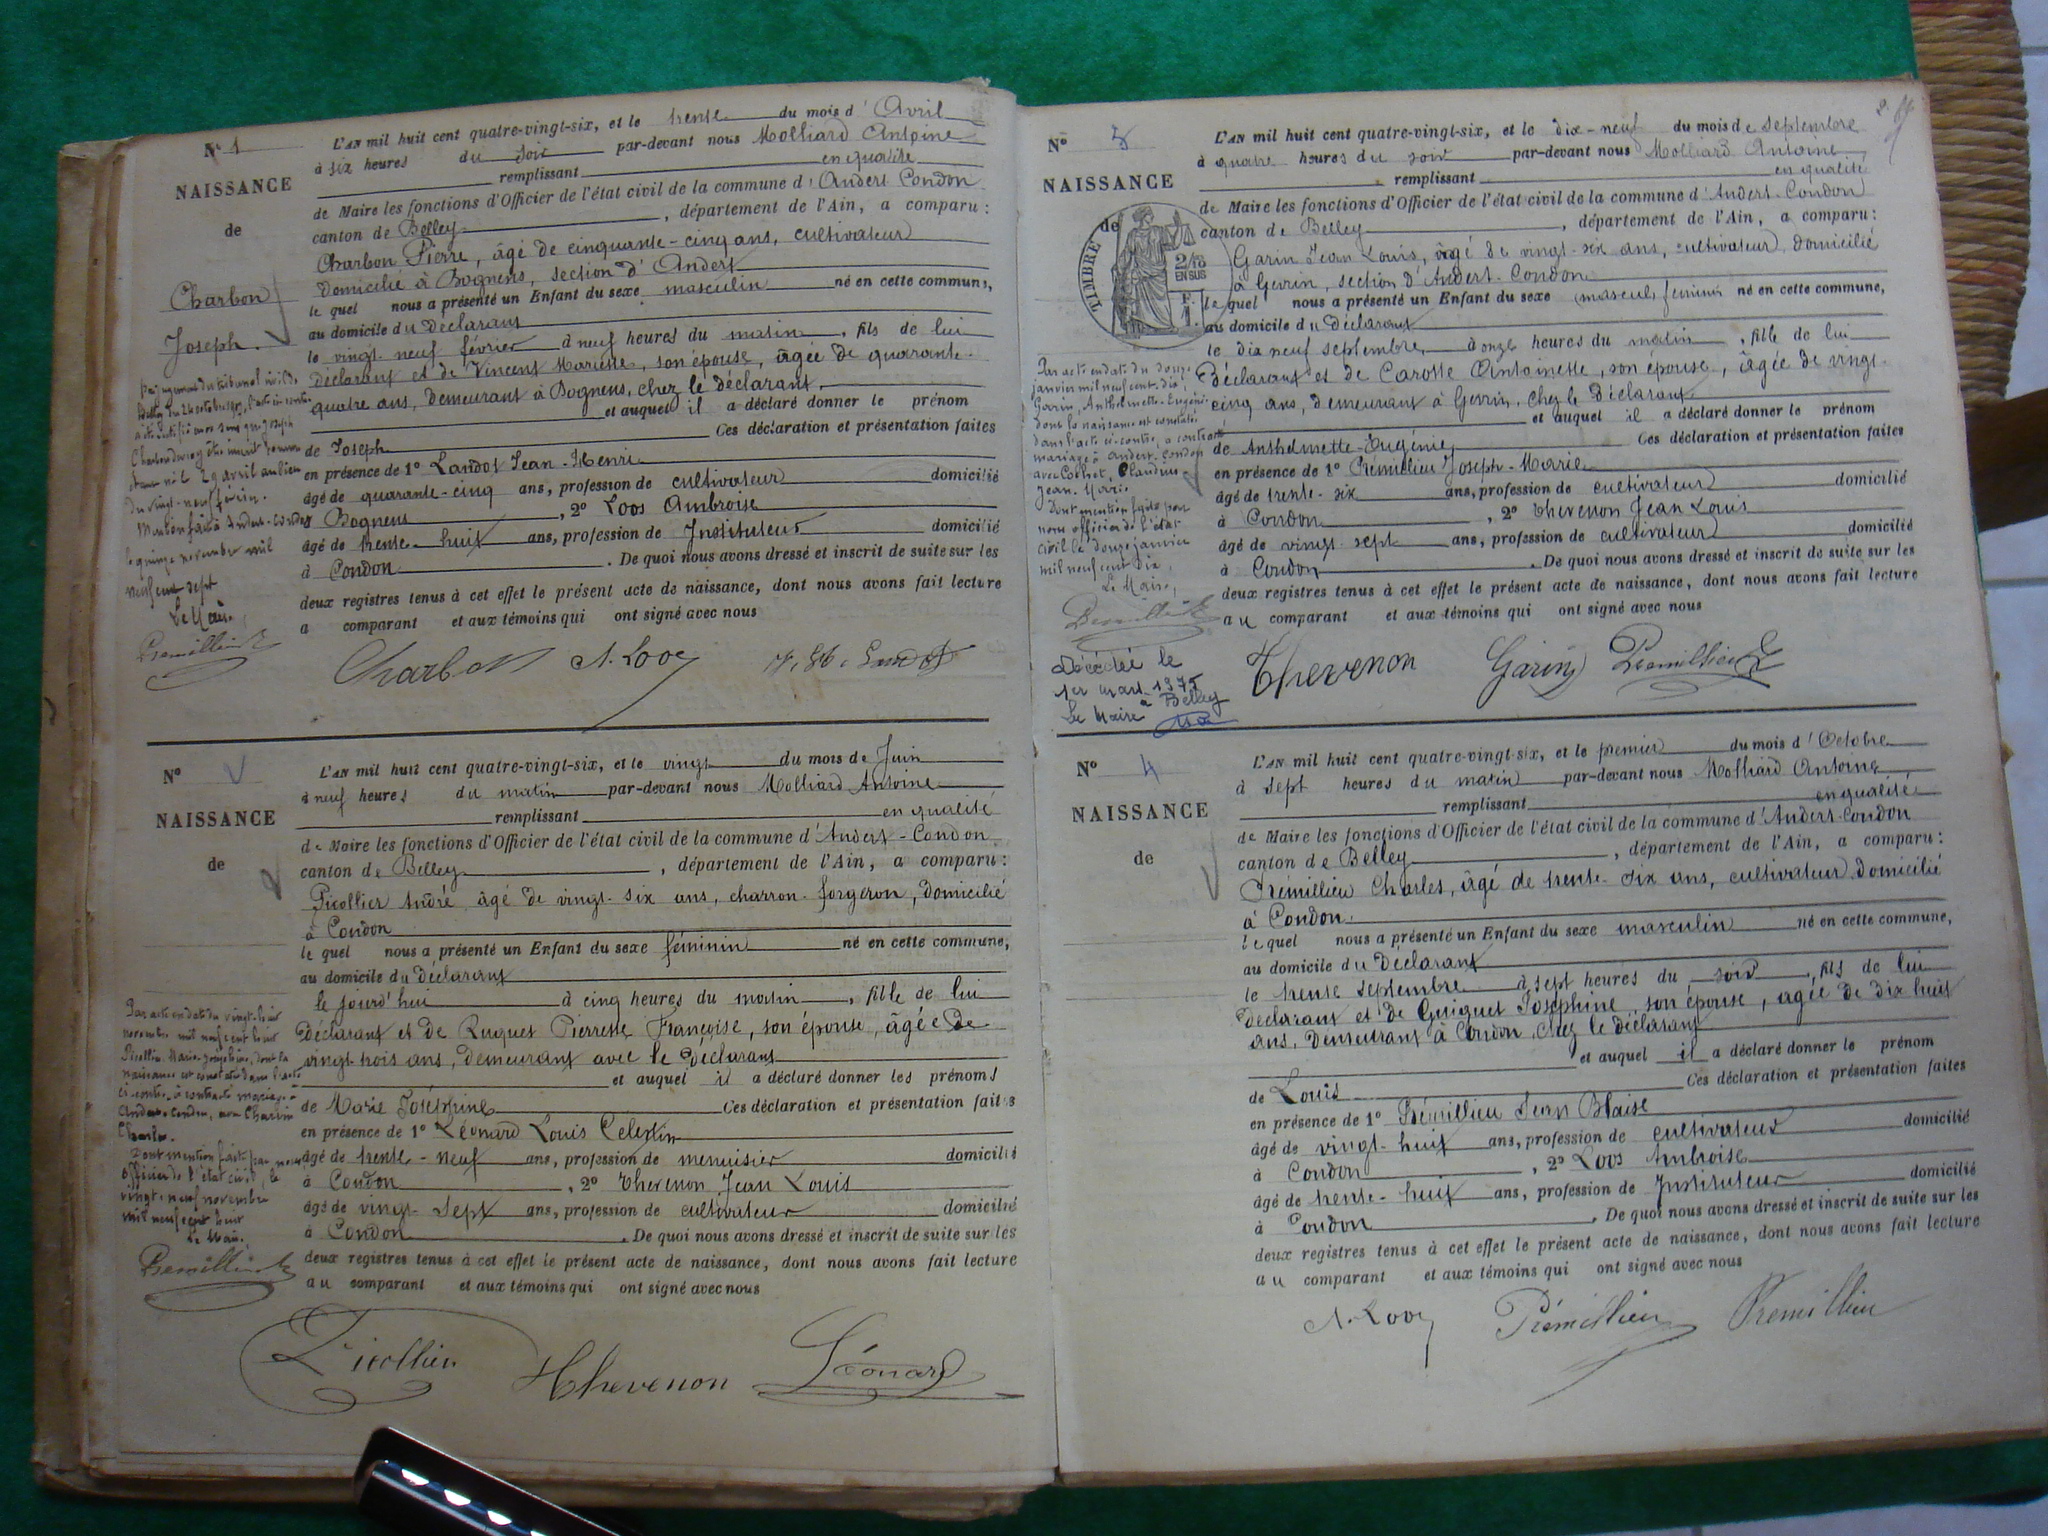 N° 1
NAISSANCE
de
Charbon
Joseph.
L'AN mil huit cent quatre-vingt-six, et le trente du mois d'Avril
à six heures du soir par-devant nous Molliard Antoine
remplissant en qualité
de Maire les fonctions d'Officier de l'état civil de la commune d'Andert-Condon
canton de Belley, département de l'Ain, a comparu :
Charbon Pierre, âgé de cinquante-cinq ans, cultivateur
domicilié à Bognens, section d'Andert
le quel nous a présenté un Enfant du sexe masculin né en cette commune,
au domicile du Déclarant
le vingt-neuf février à neuf heures du matin, fils de lui
Déclarant et de Vincent Mariette, son épouse, âgée de quarante-
quatre ans, demeurant à Bognens, chez le déclarant,
et auquel il a déclaré donner le prénom
de Joseph Ces déclaration et présentation faites
en présence de 1° Landot Jean-Henri
âgé de quarante-cinq ans, profession de cultivateur domicilié
à Bognens, 2° Loos Ambroise
âgé de trente-huit ans, profession de Instituteur domicilié
à Condon. De quoi nous avons dressé et inscrit de suite sur les
deux registres tenus à cet effet le présent acte de naissance, dont nous avons fait lecture
a comparant et aux témoins qui ont signé avec nous
du vingt-neuf février.
Mention faite à Andert-Condon
le quinze novembre mil
neuf cent sept
Le Maire,
Premillieu
Charbon A. Loos
N°
NAISSANCE
de
L'AN mil huit cent quatre-vingt-six, et le vingt du mois de Juin
à neuf heures du matin par-devant nous Molliard Antoine
remplissant en qualité
de Maire les fonctions d'Officier de l'état civil de la commune d'Andert-Condon
canton de Belley, département de l'Ain, a comparu :
Picollier André âgé de vingt-six ans, charron-forgeron, domicilié
à Condon
le quel nous a présenté un Enfant du sexe féminin né en cette commune,
au domicile du Déclarant
le jourd'hui à cinq heures du matin, fille de lui
Déclarant et de Ruquet Pierrette Françoise, son épouse, âgée de
vingt-trois ans, demeurant avec le Déclarant
et auquel il a déclaré donner les prénoms
de Marie Joséphine Ces déclaration et présentation faites
en présence de 1° Léonard Louis Célestin
âgé de trente-neuf ans, profession de menuisier domicilié
à Condon, 2° Thevenon Jean Louis
âgé de vingt-sept ans, profession de cultivateur domicilié
à Condon. De quoi nous avons dressé et inscrit de suite sur les
deux registres tenus à cet effet le présent acte de naissance, dont nous avons fait lecture
au comparant et aux témoins qui ont signé avec nous
Par acte en date du vingt-huit
novembre mil neuf cent huit
Picollier Marie-Joséphine, dont la
naissance est constatée dans l'acte
ci-contre, a contracté mariage à
Andert-Condon, avec
Charles.
Dont mention faite par nous
officier de l'état civil, le
vingt-neuf novembre
mil neuf cent huit
Le Maire,
Premillieu
Picollier Thevenon Léonard
N° 3
NAISSANCE
de
TIMBRE
2/10
EN SUS
L'AN mil huit cent quatre-vingt-six, et le dix-neuf du mois de septembre
à quatre heures du soir par-devant nous Molliard Antoine
remplissant en qualité
de Maire les fonctions d'Officier de l'état civil de la commune d'Andert-Condon
canton de Belley, département de l'Ain, a comparu :
Garin Jean Louis, âgé de vingt-six ans, cultivateur, domicilié
à Gevrin, section d'Andert-Condon
le quel nous a présenté un Enfant du sexe féminin né en cette commune,
au domicile du Déclarant
le dix neuf septembre à onze heures du matin, fille de lui
Déclarant et de Carotte Antoinette, son épouse, âgée de vingt-
cinq ans, demeurant à Gevrin, chez le Déclarant
et auquel il a déclaré donner le prénom
de Anthelmette-Eugénie Ces déclaration et présentation faites
en présence de 1° Prémillieu Joseph-Marie
âgé de trente-six ans, profession de cultivateur domicilié
à Condon, 2° Thevenon Jean Louis
âgé de vingt-sept ans, profession de cultivateur domicilié
à Condon. De quoi nous avons dressé et inscrit de suite sur les
deux registres tenus à cet effet le présent acte de naissance, dont nous avons fait lecture
au comparant et aux témoins qui ont signé avec nous
Par acte en date du douze
janvier mil neuf cent dix,
Garin, Anthelmette-Eugénie
dont la naissance est constatée
dans l'acte ci-contre, a contracté
mariage à Andert-Condon
avec Cochet, Claudius
Jean-Marie.
Dont mention faite par
nous officier de l'état
civil le douze janvier
mil neuf cent dix.
Le Maire,
Premillieu
décédée le
1er mars 1975
à Belley
Le Maire
Thevenon Garin Premillieu
N° 4
NAISSANCE
de
L'AN mil huit cent quatre-vingt-six, et le premier du mois d'Octobre
à sept heures du matin par-devant nous Molliard Antoine
remplissant en qualité
de Maire les fonctions d'Officier de l'état civil de la commune d'Andert-Condon
canton de Belley, département de l'Ain, a comparu :
Prémillieu Charles, âgé de trente-six ans, cultivateur domicilié
à Condon.
le quel nous a présenté un Enfant du sexe masculin né en cette commune,
au domicile du Déclarant
le trente septembre à sept heures du soir, fils de lui
Déclarant et de Guiguet Joséphine son épouse, âgée de dix huit
ans, demeurant à Condon, chez le déclarant
et auquel il a déclaré donner le prénom
de Louis Ces déclaration et présentation faites
en présence de 1° Prémillieu Jean Blaise
âgé de vingt-huit ans, profession de cultivateur domicilié
à Condon, 2° Loos Ambroise
âgé de trente-huit ans, profession de Instituteur domicilié
à Condon. De quoi nous avons dressé et inscrit de suite sur les
deux registres tenus à cet effet le présent acte de naissance, dont nous avons fait lecture
au comparant et aux témoins qui ont signé avec nous
A. Loos Prémillieu Premillieu